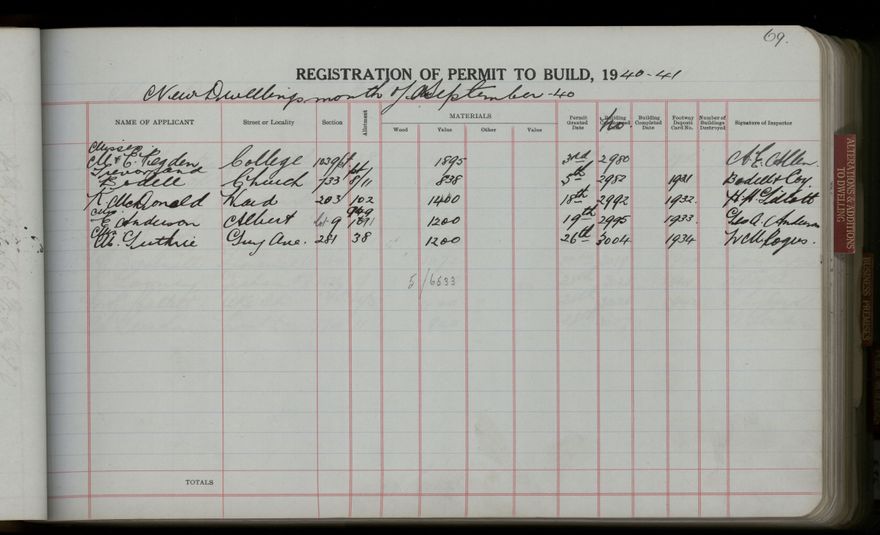 69.
REGISTRATION OF PERMIT TO BUILD, 1940-41
New Dwellings month of September-40
NAME OF APPLICANT Street or Locality Section Allotment MATERIALS Permit Granted Date Building Commenced No Building Completed Date Footway Deposit Card No. Number of Buildings Destroyed Signature of Inspector
Wood Value Other Value
Misses
M & E. College 1895 3rd 2980 A. E. Allen.
Trevor and
Bodell Church 733 8/11 838 5th 2982 1931 Bodell & Coy
McDonald Ward 203 102 1440 18th 2992 1932
Mrs
E. Anderson Albert lot 9 1200 19th 2995 1933 Geo A. Anderson
Guthrie Guy Ave. 281 38 1200 26th 3004 1934
5/6533
TOTALS
ALTERATIONS & ADDITIONS TO DWELLING
BUSINESS PREMISES